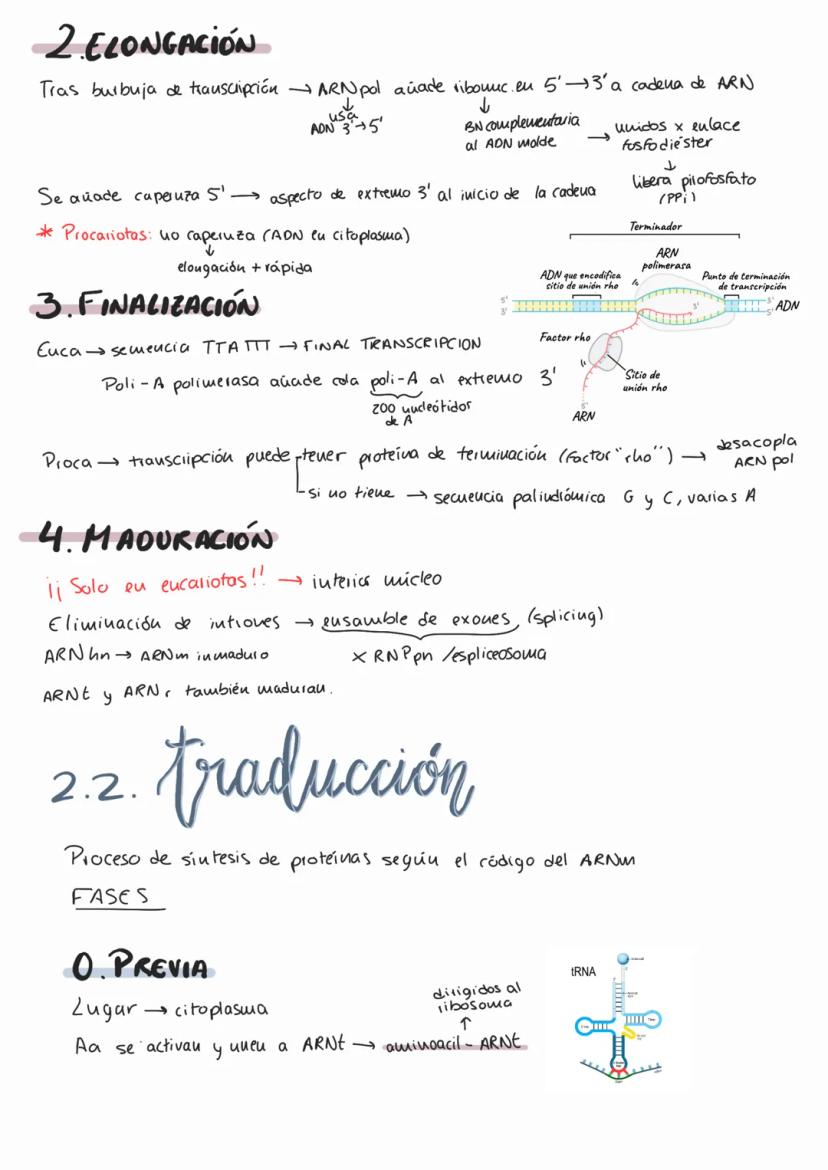 2. ELONGACIÓN
Tras burbuja de transcripción → ARN pol añade ribonuc. en 5' → 3' a cadena de ARN
usa
ADN 3' → 5'
BN complementaria
al ADN molde
→ unidos x enlace
fosfodiéster
libera pirofosfato
(PPi)
Se añade caperuza 5' → aspecto de extremo 3' al inicio de la cadena
* Procariotas: no caperuza (ADN en citoplasma)
elongación + rápida
Terminador
ARN
polimerasa
ADN que encodifica
sitio de unión rho
Punto de terminación
de transcripción
5'
3'
3'
3'
5'
ADN
Factor rho
Sitio de
unión rho
5'
ARN
3. FINALIZACIÓN
Euca → secuencia TTATTT → FINAL TRANSCRIPCION
Poli-A polimerasa añade cola poli-A al extremo 3'
200 nucleótidos
de A
Proca → transcripción puede tener proteína de terminación (factor "rho") → desacopla
ARN pol
si no tiene → secuencia palindrómica G y C, varias A
4. MADURACIÓN
¡¡ Solo en eucariotas!! → interior núcleo
Eliminación de intrones → ensamble de exones (splicing)
ARNhn → ARNm inmaduro
x RNPpn /espliceosoma
ARNt y ARNr también maduran.
2.2. traducción
Proceso de síntesis de proteínas según el código del ARNm
FASES
0. PREVIA
Lugar → citoplasma
dirigidos al
ribosoma
Aa se activan y unen a ARNt → aminoacil-ARNt
tRNA